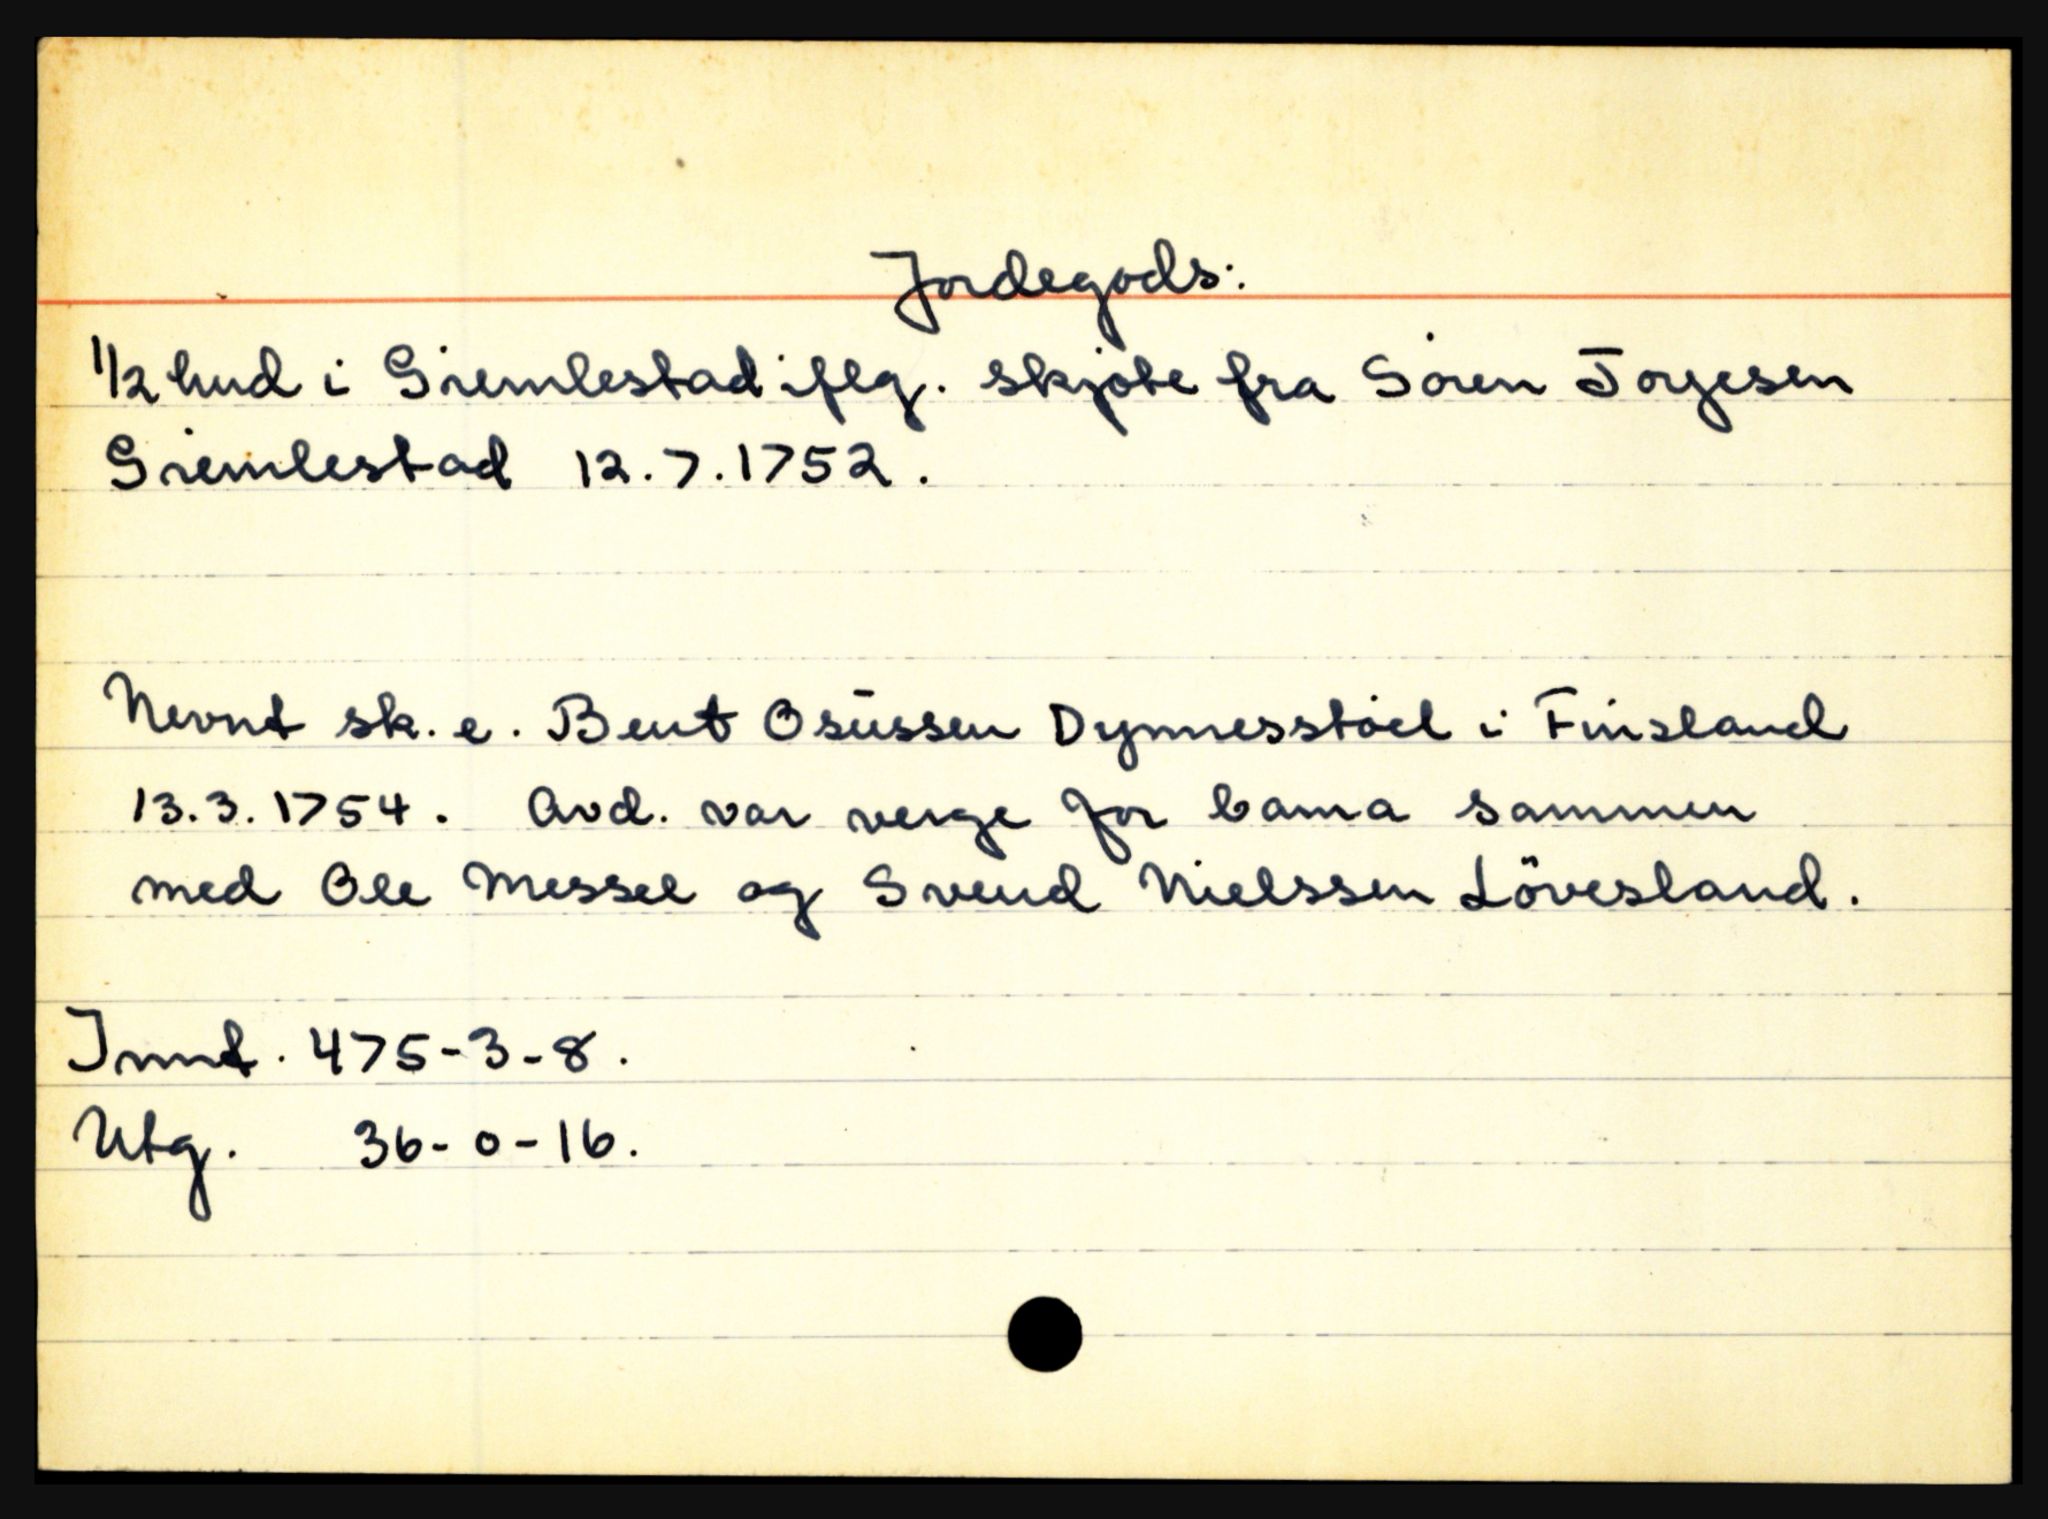 Jordegods:
1/2 hud i Gremlestad iflg. skjöte fra Sören Torjesen
Gremlestad 12.7.1752.
Nevnt sk. e. Bent Osūssen Dynnesstöel i Finsland
13.3.1754. Avd. var verge for barna sammen
med Ole Messel og Svend Nielssen Lövesland.
Innt. 475-3-8.
Utg. 36-0-16.